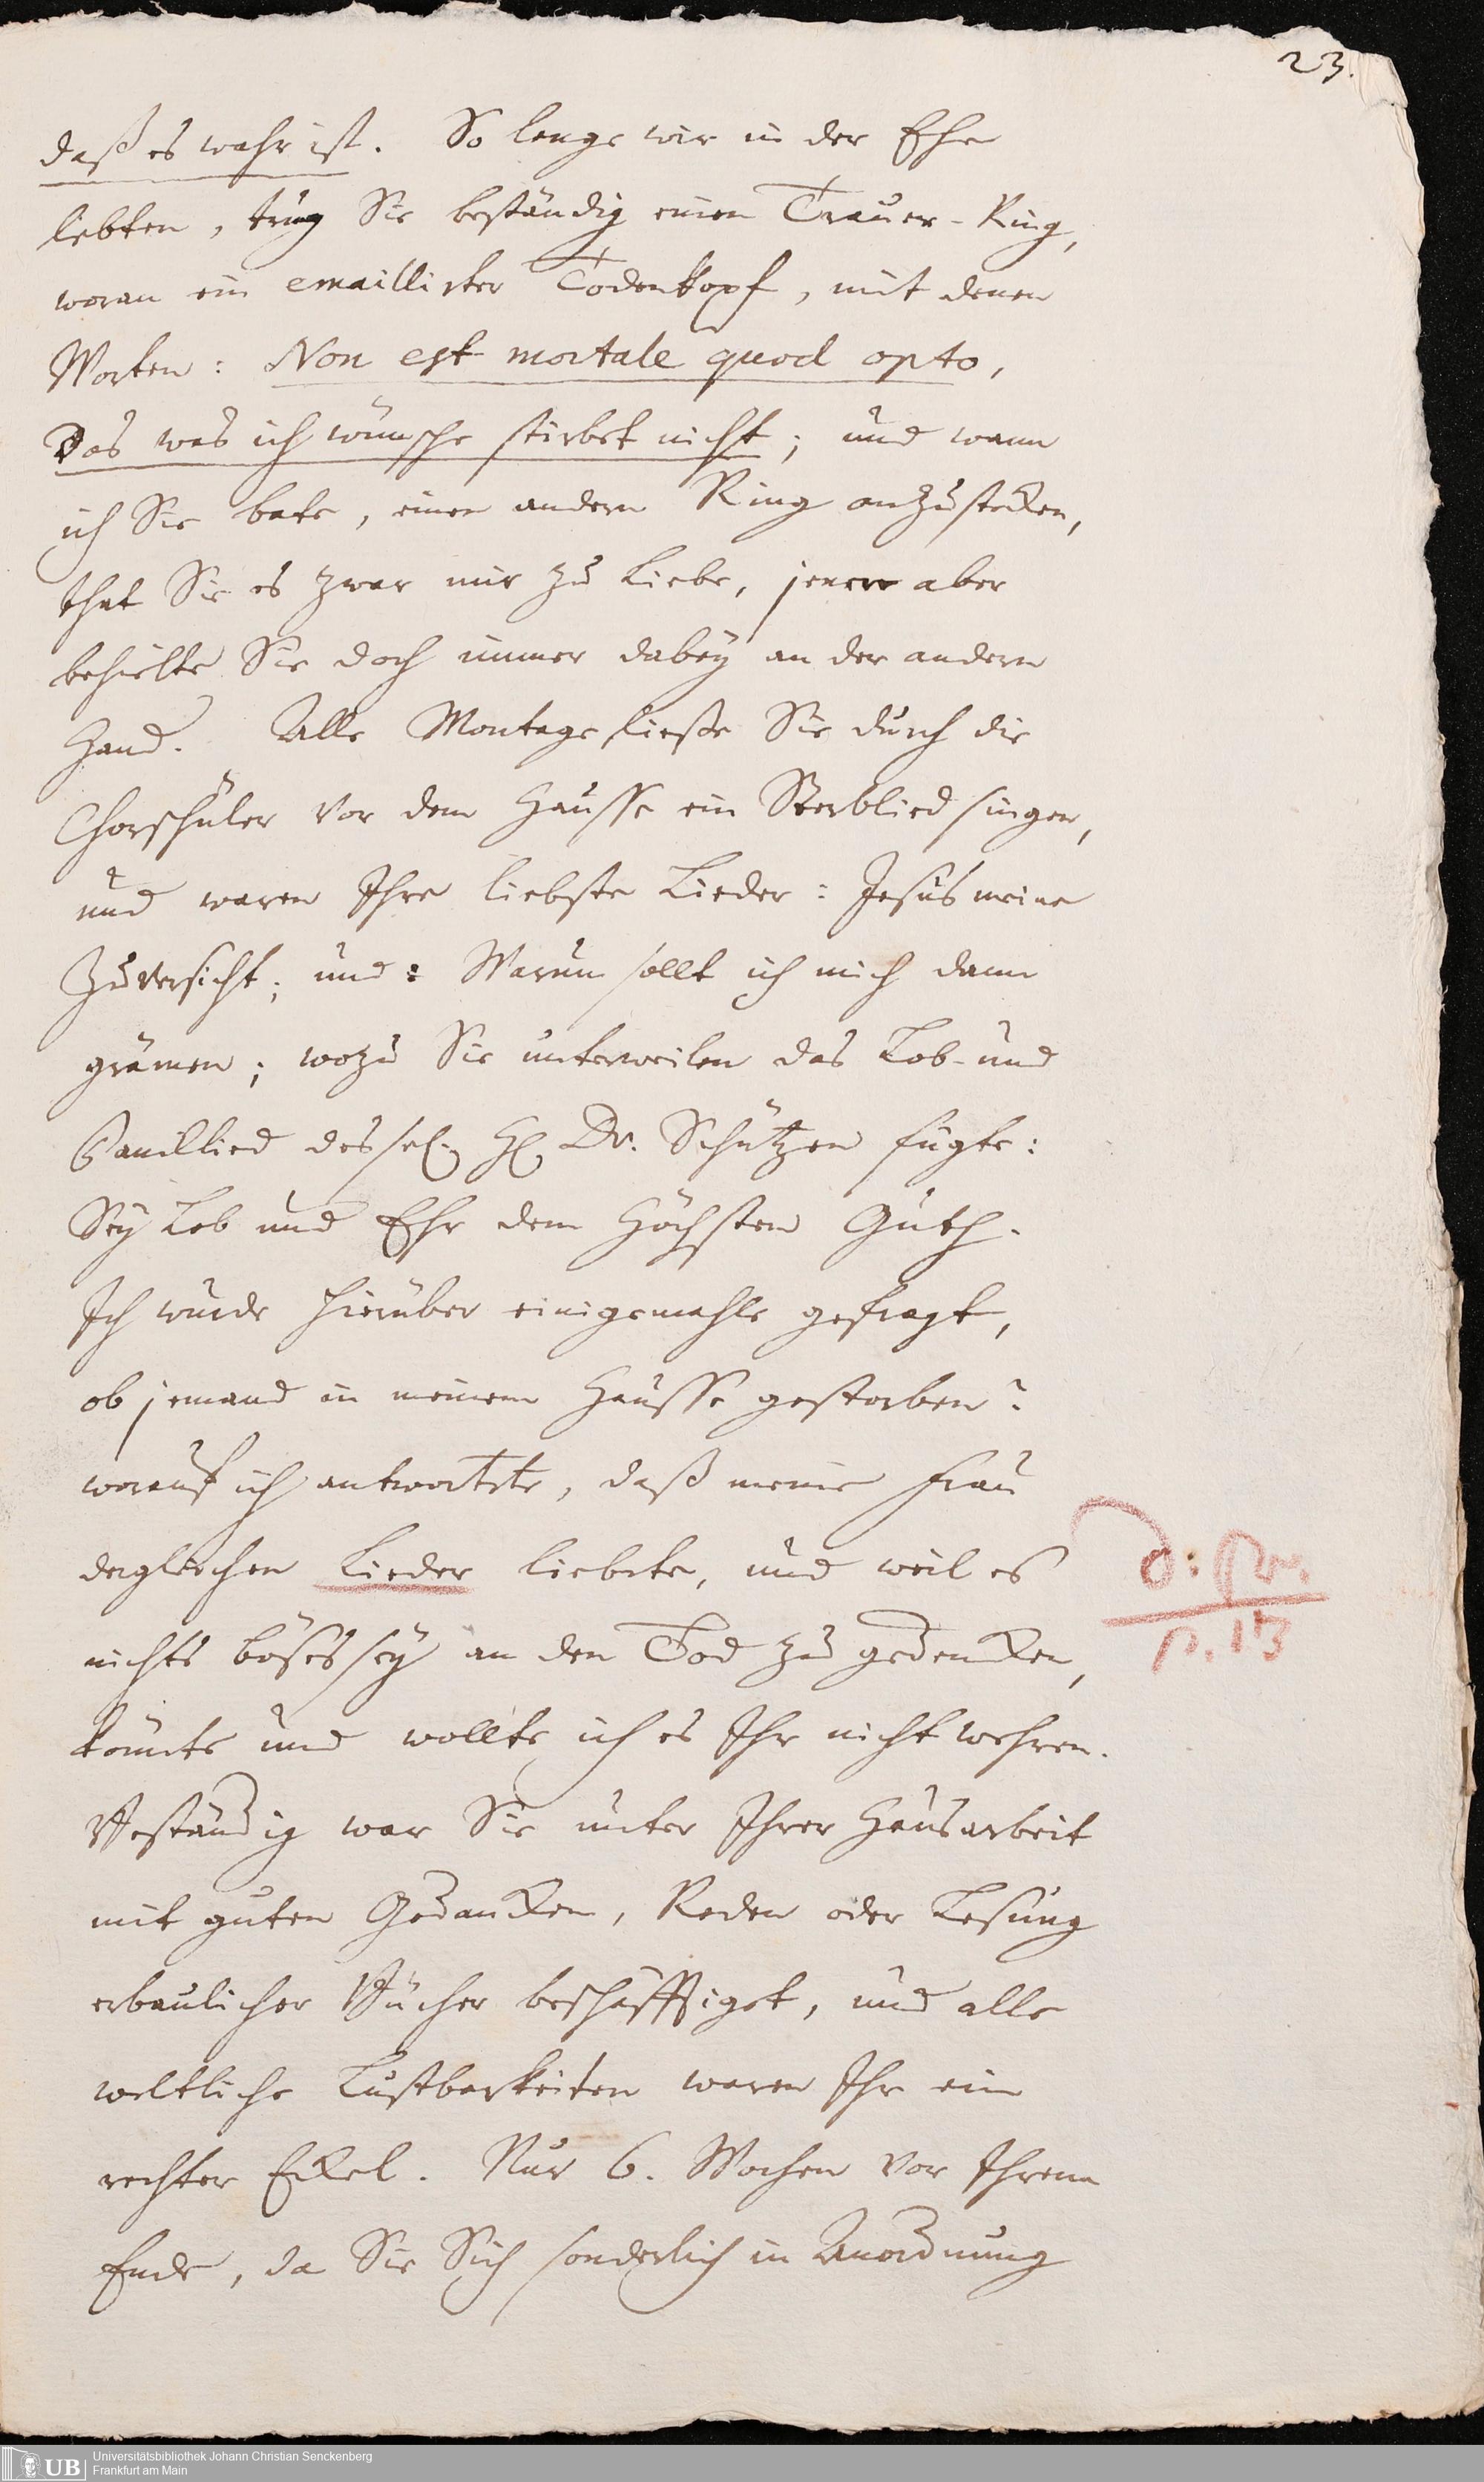 23.
daß es wahr ist. So lange wir in der Ehe
lebten, trug Sie beständig einen Trauer-Ring,
woran ein emaillirter Todenkopf, mit denen
Worten: Non est mortale quod opto,
Das was ich wünsche stirbet nicht; und wann
ich Sie bate, einen andern Ring anzustecken,
that Sie es zwar mir zu Liebe, jenen aber
behielte Sie doch immer dabey an der andern
Hand. Alle Montage ließe Sie durch die
Chorschüler vor dem Hausse ein Sterblied singen,
und waren Ihre liebste Lieder: Jesus meine
Zuversicht; und: Warum sollt ich mich dann
grämen; wozu Sie unterweilen das Lob- und
Dancklied des sel. H. Dr. Schützen fügte:
Sey Lob und Ehr dem Höchsten Guth.
Ich wurde hierüber einigemahle gefragt,
ob jemand in meinem Hausse gestorben?
worauf ich antwortete, daß meine Frau
dergleichen Lieder liebete, und weil es
nichts böses sey an den Tod zu gedencken,
könnte und wollte ich es Ihr nicht wehren.
Beständig war Sie unter Ihrer Hausarbeit
mit guten Gedancken, Reden oder Lesung
erbaulicher Bücher beschäfftiget, und alle
weltliche Lustbarkeiten waren Ihr ein
rechter Eckel. Nur 6. Wochen vor Ihrem
Ende, da Sie Sich sonderlich in Anordnung
UB Universitätsbibliothek Johann Christian Senckenberg
Frankfurt am Main